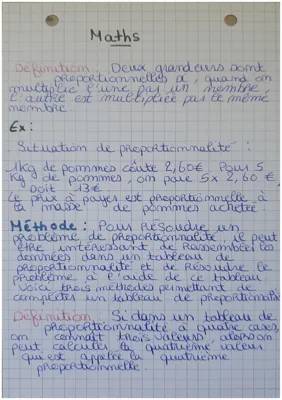 Maths
Définition : Deux grandeurs sont
proportionnelles à, quand on
multiplie l'une par un nombre,
l'autre est multipliée par le même
nombre
Ex :
Situation de proportionnalité :
1Kg de pommes coûte 2,60€ Pour 5
Kg de pommes, on paie 5 x 2,60 €,
soit 13€
Le prix à payer est proportionnelle à
la "masse" de pommes achetée.
Méthode : Pour résoudre un
problème de proportionnalité, il peut
être intéressant de rassembler les
données dans un tableau de
proportionnalité et de résoudre le
problème, à l'aide de ce tableau
Voici trois méthodes permettant de
compléter un tableau de proportionnalité
Définition : Si dans un tableau de
proportionnalité à quatre cases,
on connaît trois valeurs, alors on
peut calculer la quatrième valeur
qui est appelée la quatrième
proportionnelle.